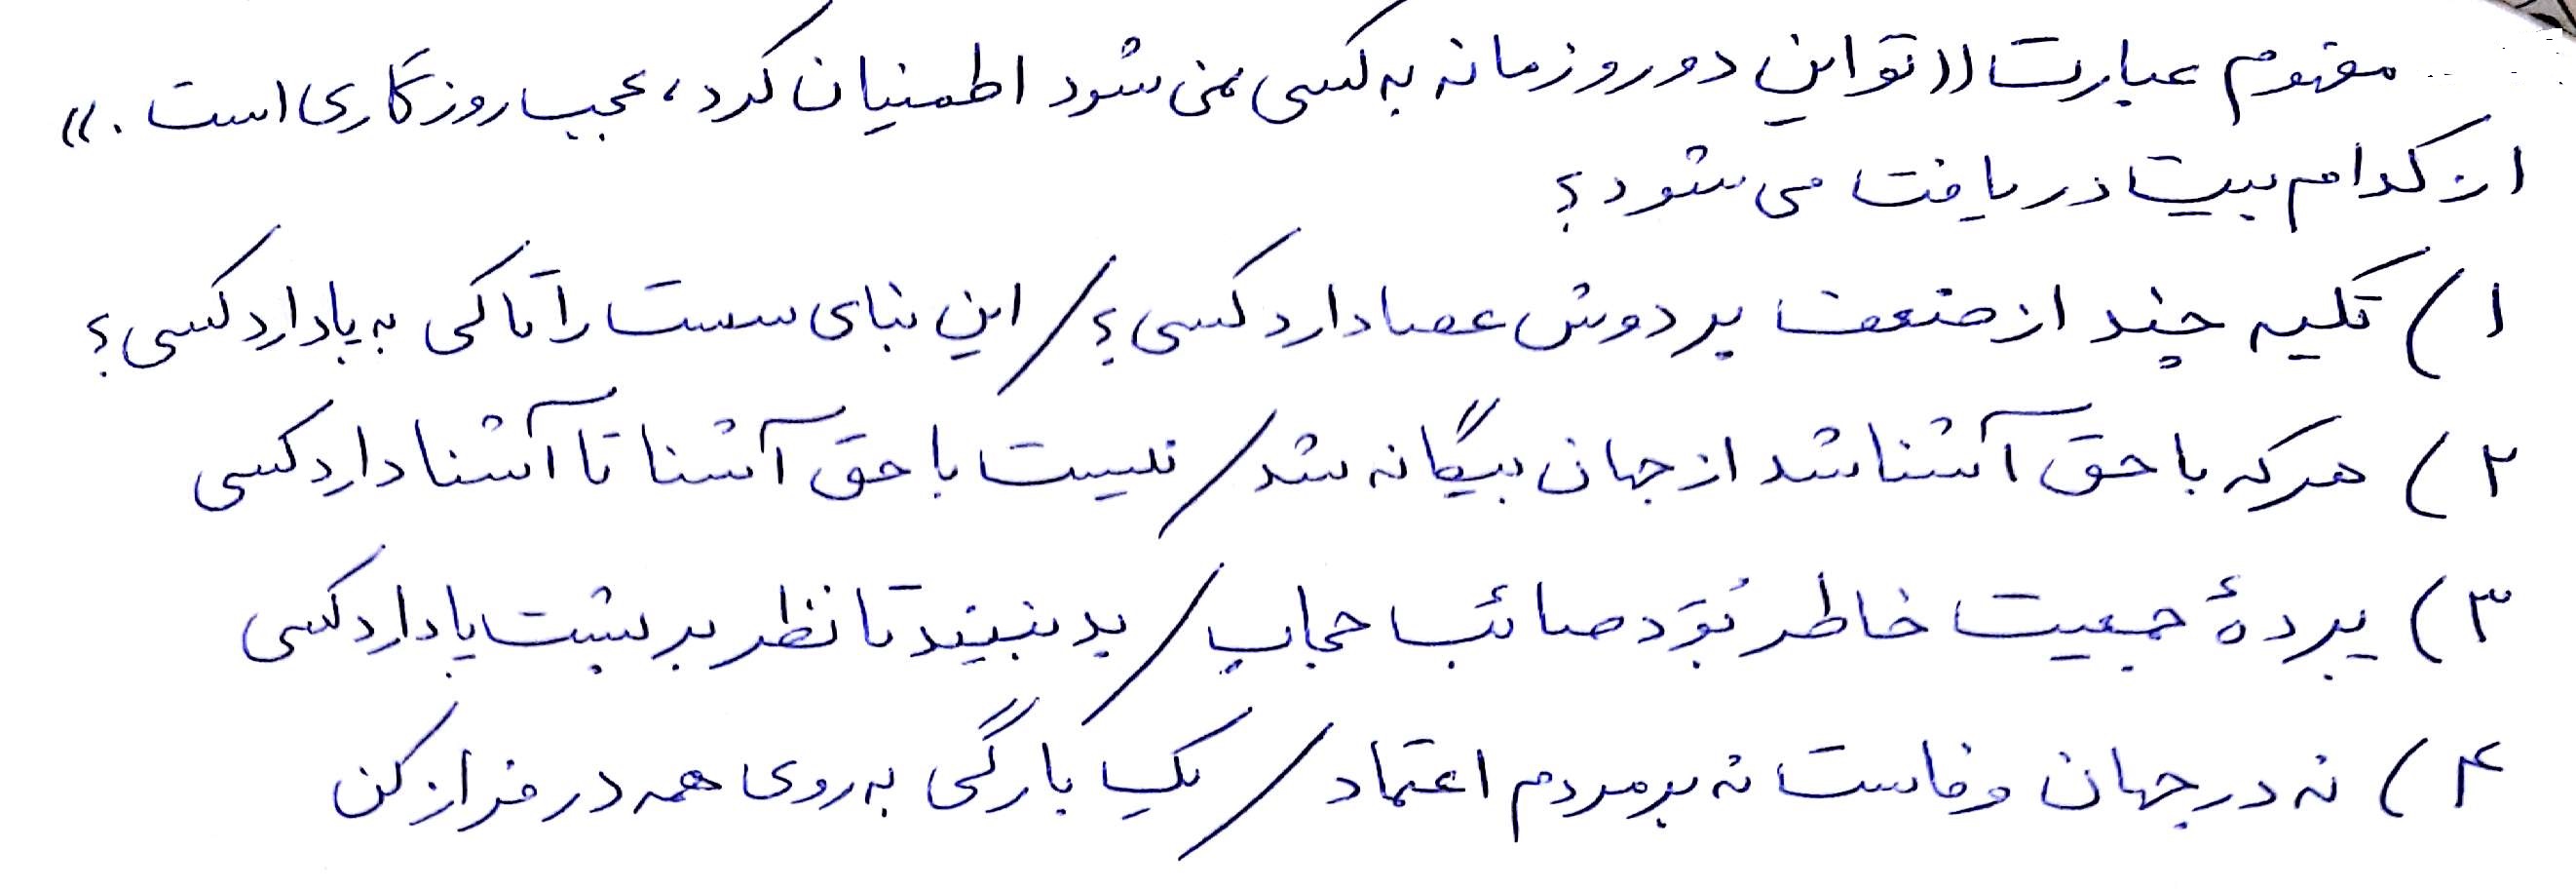 مفهوم عبارت ((تو این دور و زمانه به کسی نمی شود اطمنیان کرد، عجب روزگاری است.))
از کدام بیت دریافت می شود؟
۱) تکیه چند از ضعف بر دوش عصا دارد کسی؟/ این بنای سست را تا کی به پا دارد کسی؟
۲) هر که با حق آشنا شد از جهان بیگانه شد/ نیست با حق آشنا تا آشنا دارد کسی
۳) پردهٔ جمعیت خاطر بُوَد صائب حجاب/ بد نبیند تا نظر بر پشت پا دارد کسی
۴) نه در جهان وفاست نه بر مردم اعتماد/ یک بارگی به روی همه در فراز کن